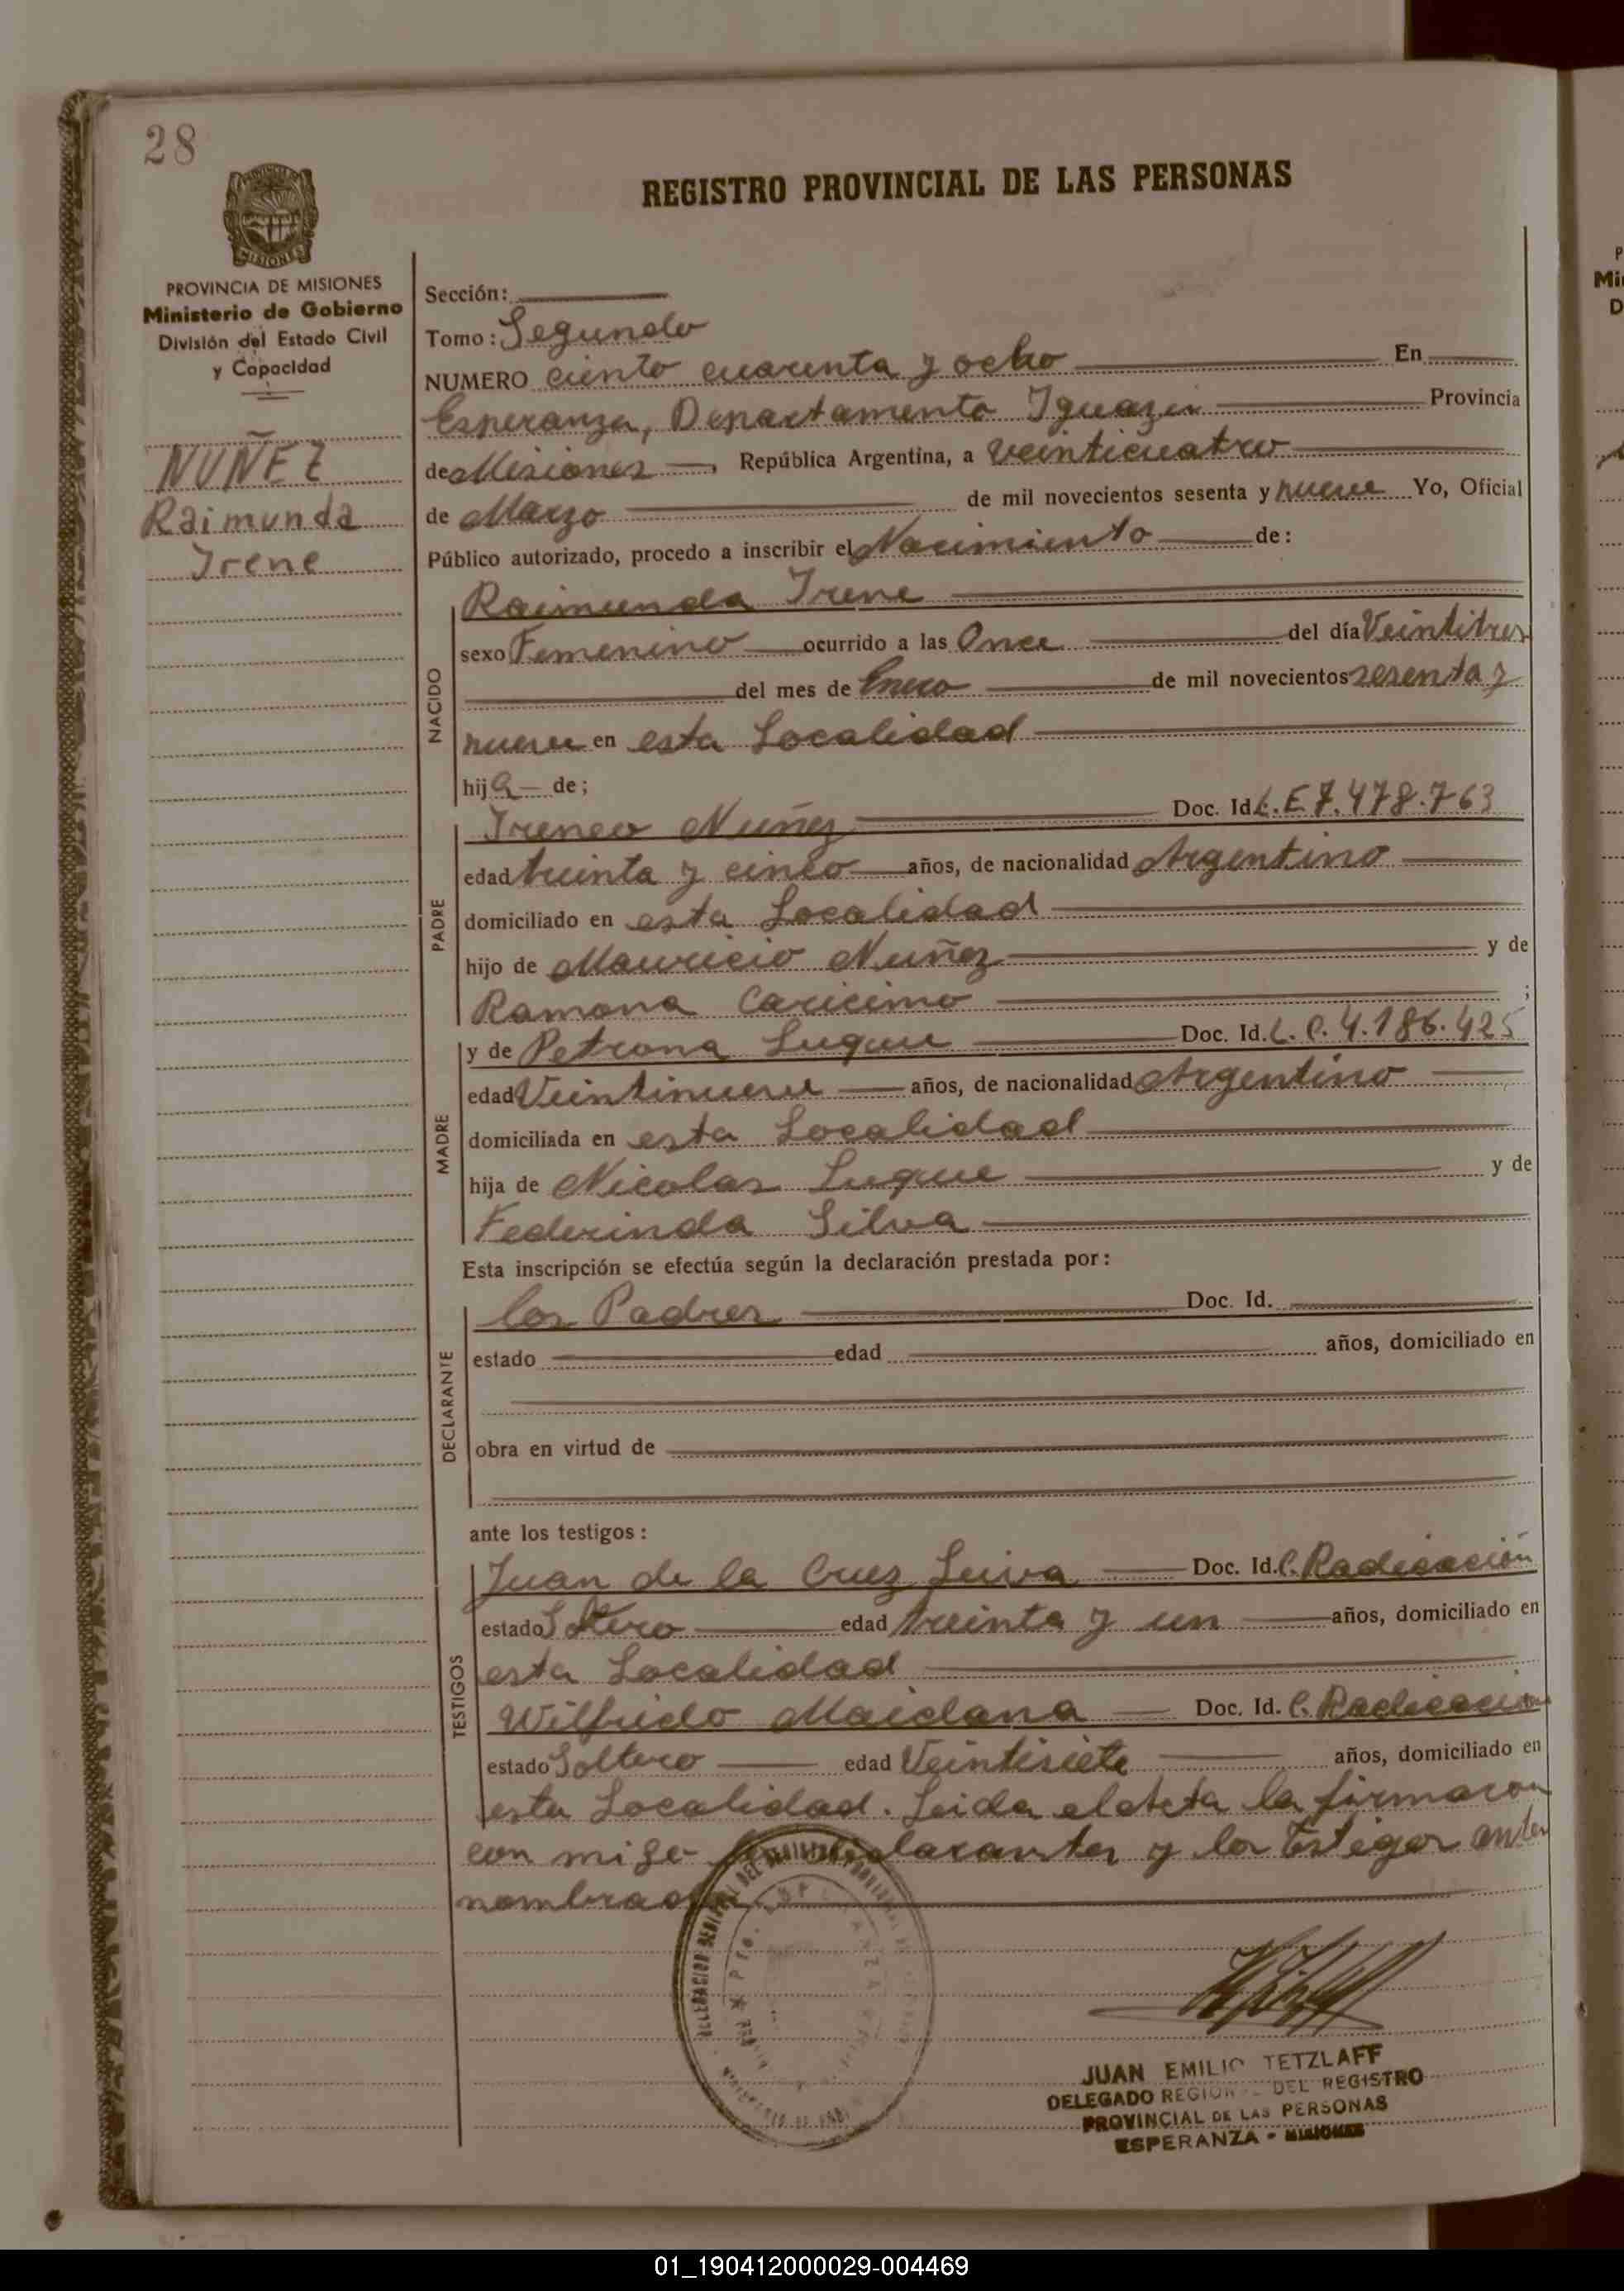 28
REGISTRO PROVINCIAL DE LAS PERSONAS
MISIONES
PROVINCIA DE MISIONES
Ministerio de Gobierno
División del Estado Civil
y Capacidad
NUÑEZ
Raimunda
Irene
Sección:
Tomo: Segundo
NUMERO ciento cuarenta y ocho En
Esperanza, Departamento Iguazú Provincia
de Misiones, República Argentina, a veinticuatro
de Marzo de mil novecientos sesenta y nueve Yo, Oficial
Público autorizado, procedo a inscribir el Nacimiento de:
NACIDO
Raimunda Irene
sexo Femenino ocurrido a las Once del día Veintitres
del mes de Enero de mil novecientos sesenta y
nueve en esta Localidad
hija de;
PADRE
Ireneo Nuñez Doc. Id. L.E 7.478.763
edad treinta y cinco años, de nacionalidad Argentino
domiciliado en esta Localidad
hijo de Mauricio Nuñez y de
Ramona Caricimo ;
MADRE
y de Petrona Luque Doc. Id. L.C. 4.186.425
edad Veintinueve años, de nacionalidad Argentino
domiciliada en esta Localidad
hija de Nicolas Luque y de
Federinda Silva
Esta inscripción se efectúa según la declaración prestada por:
DECLARANTE
los Padres Doc. Id.
estado edad años, domiciliado en
obra en virtud de
ante los testigos:
TESTIGOS
Juan de la Cruz Leiva Doc. Id. C. Radicación
estado Soltero edad treinta y un años, domiciliado en
esta Localidad
Wilfrido Maidana Doc. Id. C. Radicación
estado Soltero edad Veintisiete años, domiciliado en
esta Localidad. Leida el Acta la firmaron
con migo los declarantes y los testigos antes
nombrados
JUAN EMILIO TETZLAFF
DELEGADO REGIONAL DEL REGISTRO
PROVINCIAL DE LAS PERSONAS
ESPERANZA - MISIONES
01_190412000029-004469